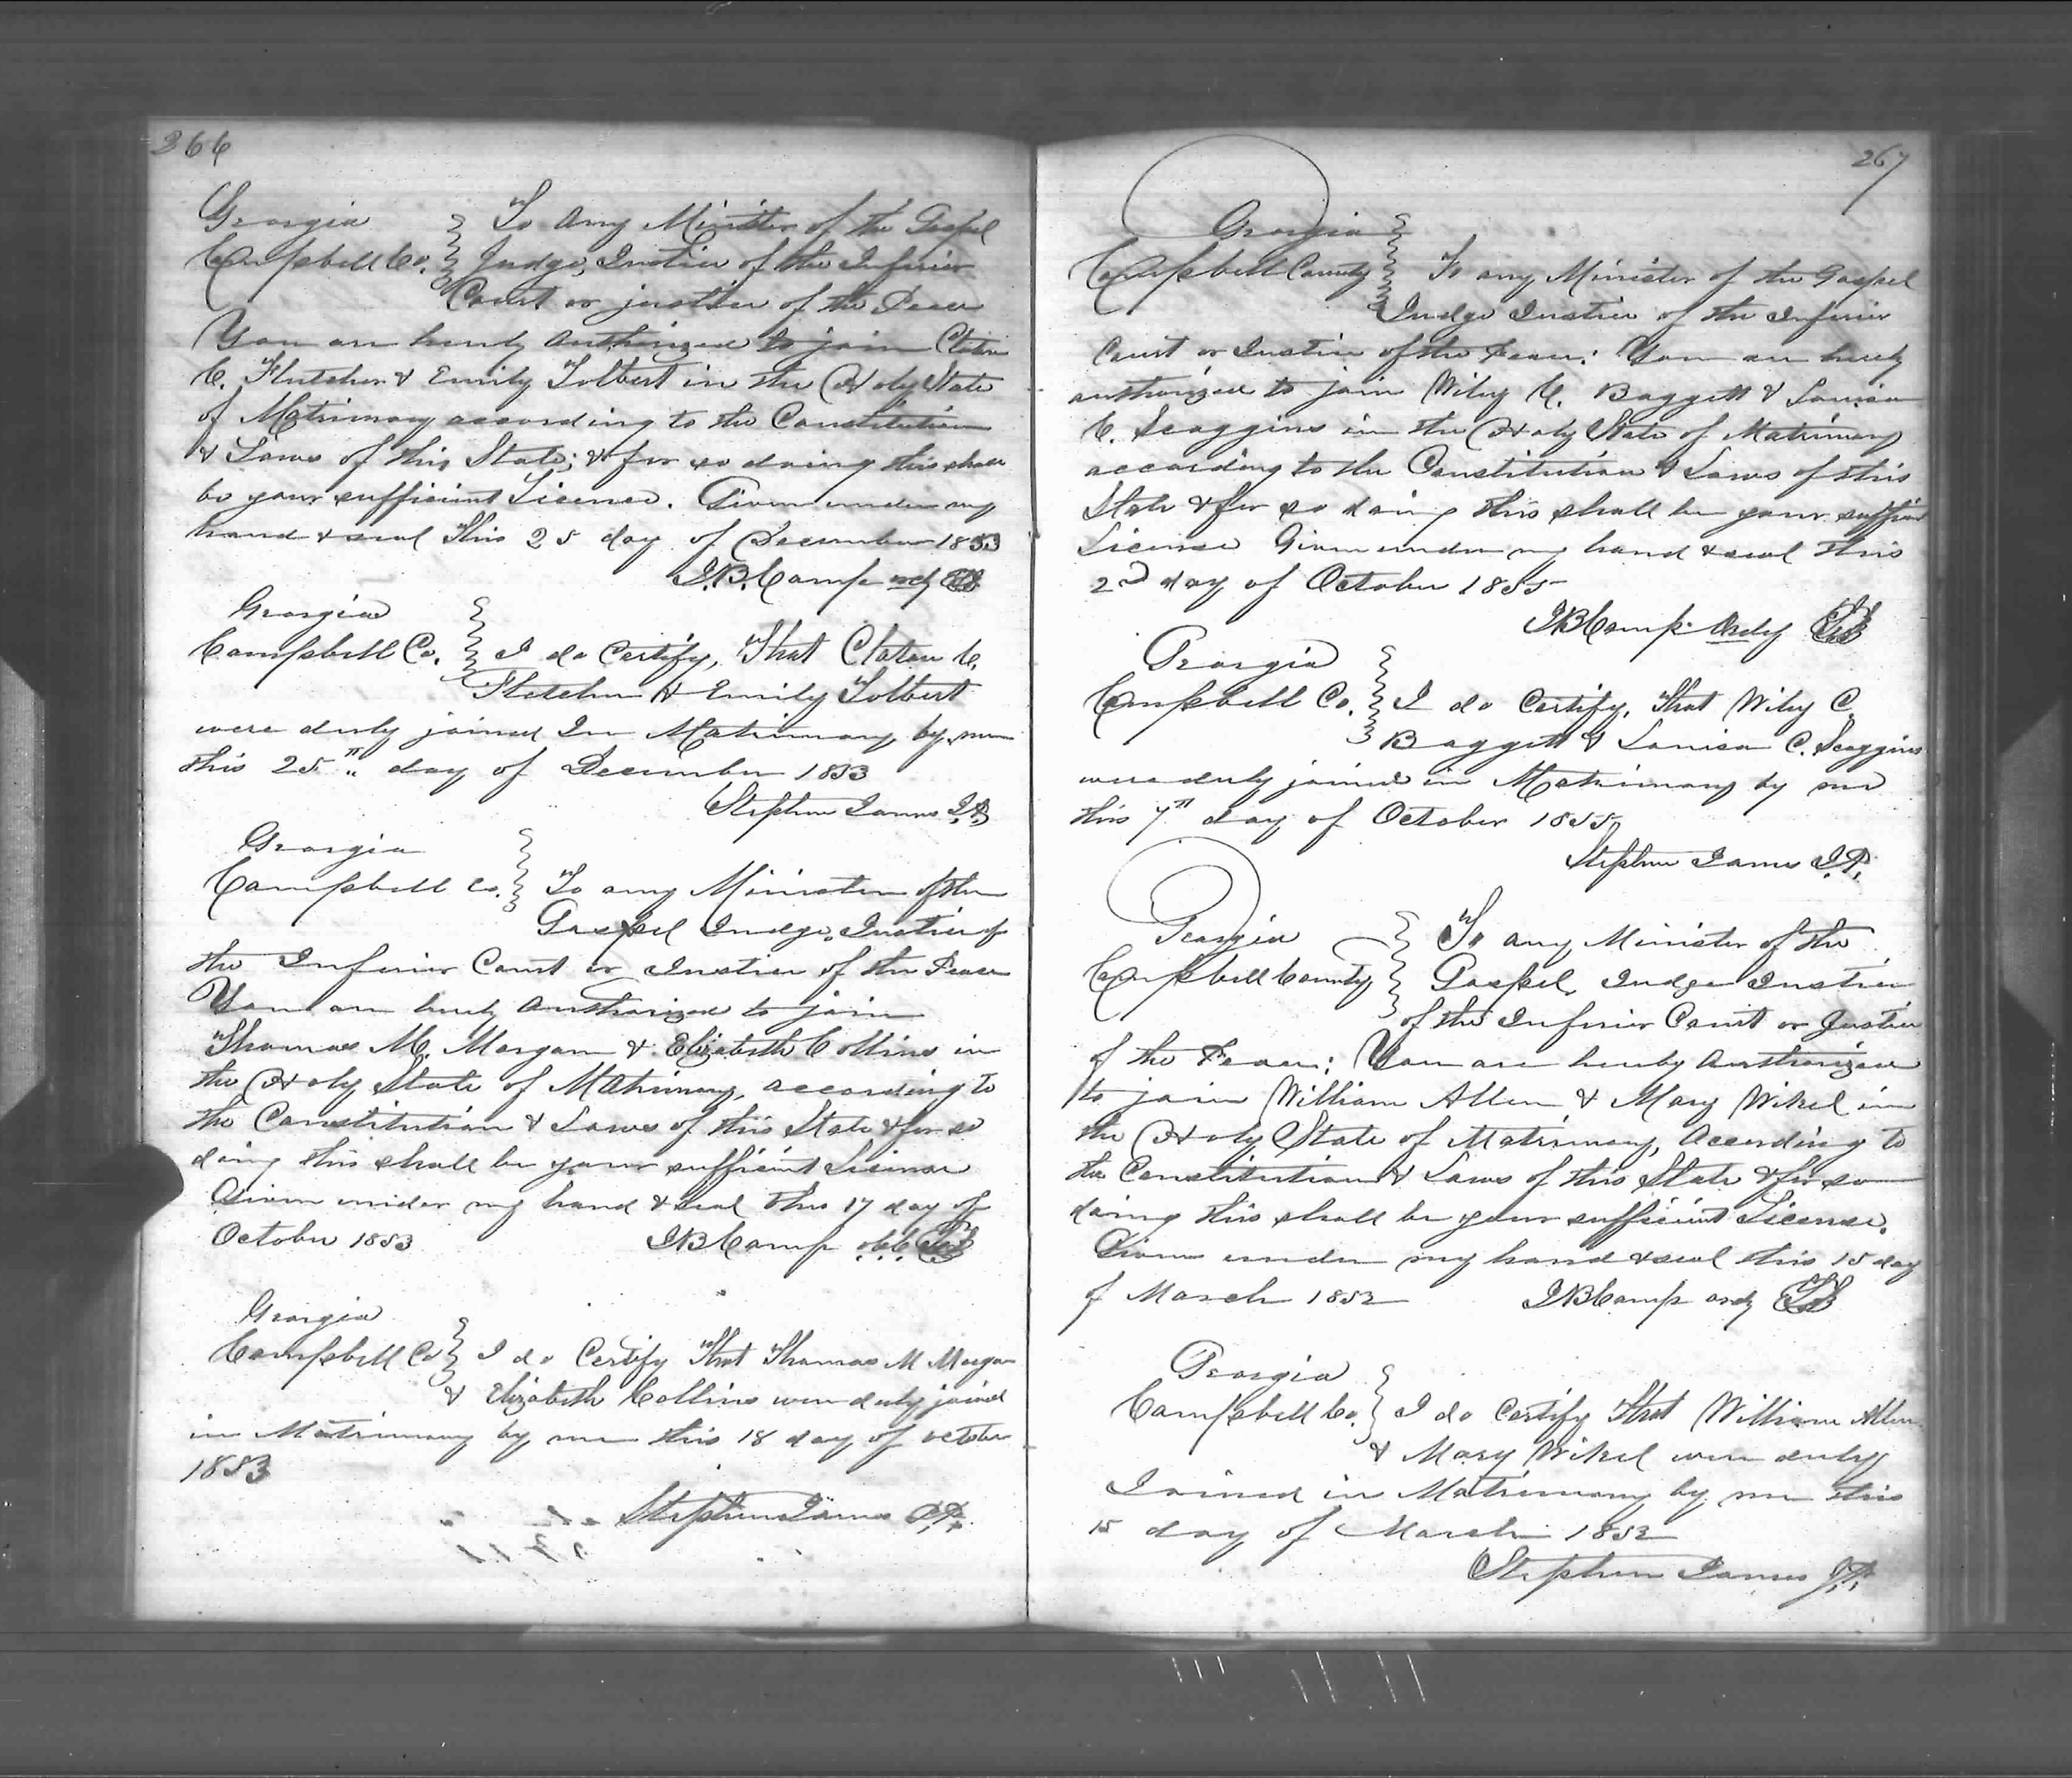 266
Georgia
Campbell Co. To any Minister of the Gospel
Judge, Justice of the Inferior
Court or justice of the Peace
You are hereby Authorized to join Claton
C. Fletcher & Emily Tolbert in the Holy State
of Matrimony according to the Constitution
& Laws of this State; & for so doing this shall
be your sufficient License. Given under my
hand & seal This 25 day of December 1853
J.B. Camp ordy
Georgia
Campbell Co. I do Certify, That Claton C.
Fletcher & Emily Tolbert
were duly joined In Matrimony by me
this 25th day of December 1853
Stephen James J.P.
Georgia
Campbell Co. To any Minister of the
Gospel Judge, Justice of
the Inferior Court or Justice of the Peace
You are hereby Authorized to join
Thomas M. Morgan & Elizabeth Collins in
the Holy State of Matrimony, according to
the Constitution & Laws of this State & for so
doing this shall be your sufficient License
Given under my hand & seal this 17 day of
October 1853 J B Camp c.c.c.
Georgia
Campbell Co I do Certify That Thomas M Morgan
& Elizabeth Collins were duly joined
in Matrimony by me this 18 day of october
1853
Stephen James J.P.
267
Georgia
Campbell County To any Minister of the Gospel
Judge Justice of the Inferior
Court or Justice of the Peace: You are hereby
authorized to join Wiley C. Baggett & Louisa
C. Scoggins in the Holy State of Matrimony
according to the Constitution & Laws of this
State & for so doing this shall be your suffict
License Given under my hand & seal this
2nd day of October 1855
J B Camp Ordy
Georgia
Campbell Co. I do Certify, That Wiley C.
Baggett & Louisa C. Scoggins
were duly joined in Matrimony by me
this 7th day of October 1855
Stephen James J.P.
Georgia
Campbell County To any Minister of the
Gospel, Judge Justice
of the Inferior Court or Justice
of the Peace: You are hereby Authorized
to join William Allen & Mary Wikel in
the Holy State of Matrimony, According to
the Constitution & Laws of this State & for so
doing this shall be your sufficient License.
Given under my hand & seal this 15 day
of March 1852 J B Camp ordy
Georgia
Campbell Co. I do Certify That William Allen
& Mary Wikel were duly
Joined in Matrimony by me this
15 day of March 1852
Stephen James J.P.